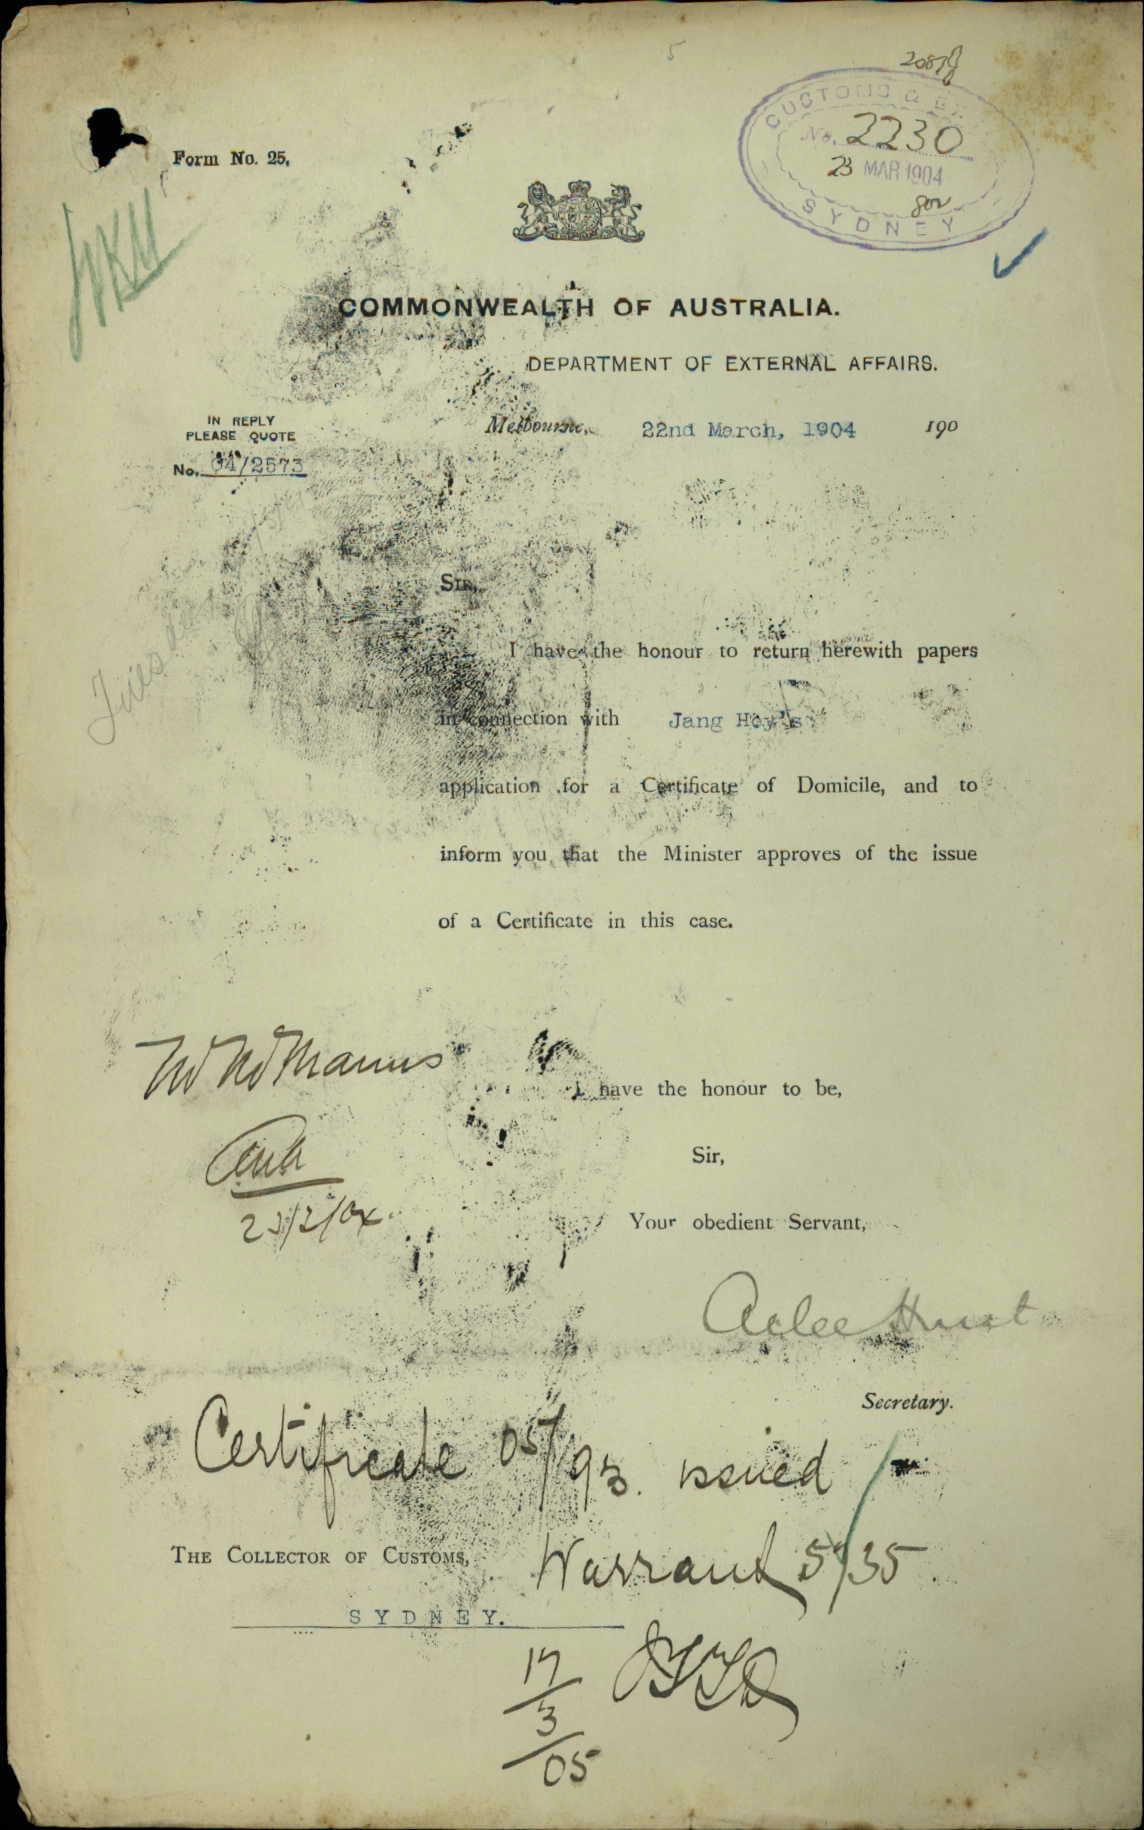 5
CUSTOMS & EX
No. 2230
23 MAR 1904
SYDNEY
Form No. 25.
COMMONWEALTH OF AUSTRALIA.
DEPARTMENT OF EXTERNAL AFFAIRS.
IN REPLY
PLEASE QUOTE
No. 04/2573
Melbourne, 22nd March, 1904 190
SIR,
I have the honour to return herewith papers
in connection with Jang Hoy's
application for a Certificate of Domicile, and to
inform you that the Minister approves of the issue
of a Certificate in this case.
I have the honour to be,
Sir,
Your obedient Servant,
Atlee Hunt
Secretary.
Certificate 05/93. issued
THE COLLECTOR OF CUSTOMS,
Warrant 5/35
SYDNEY.
17/3/05